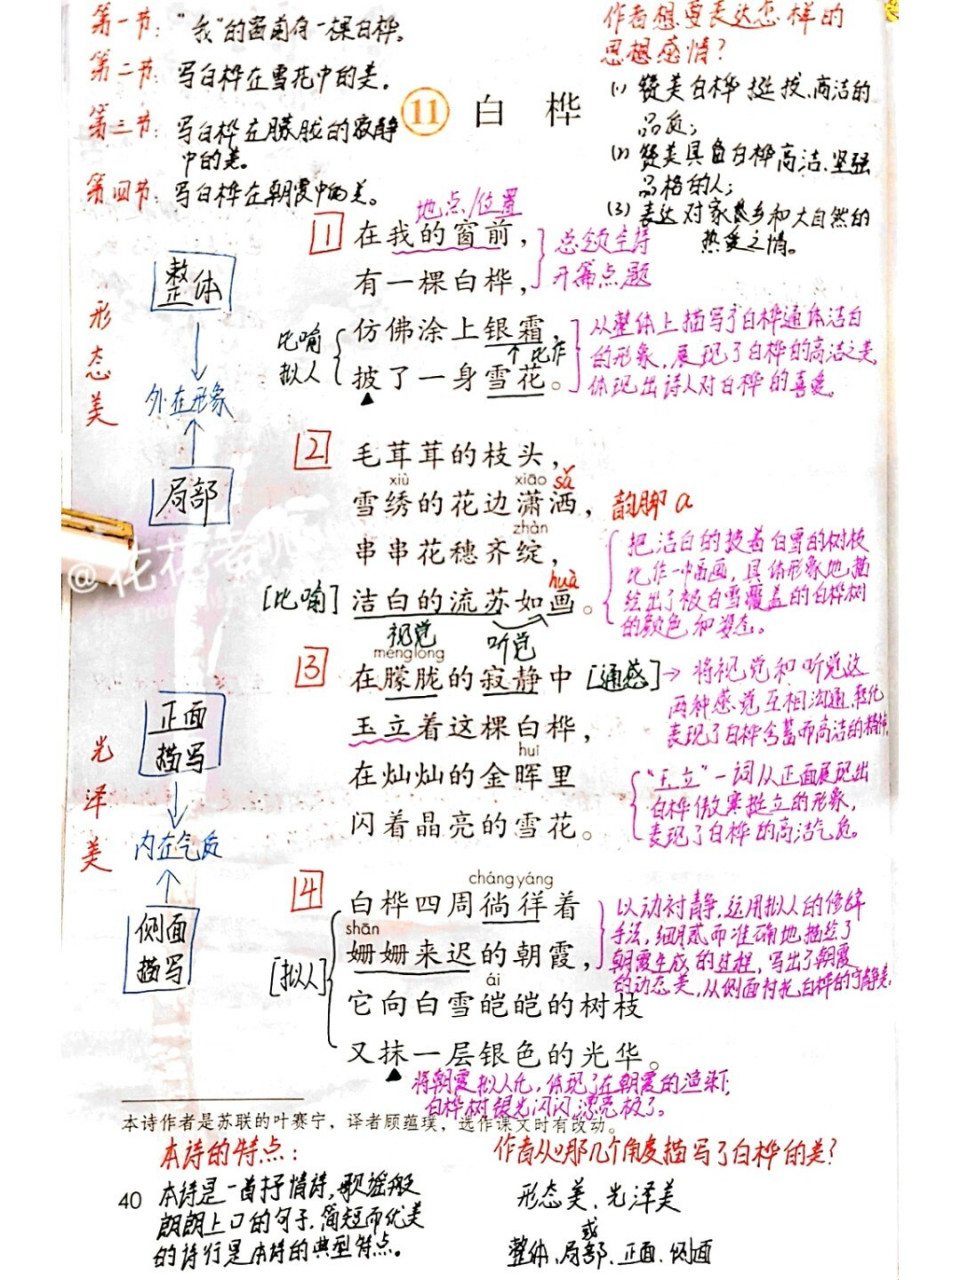 第一节: “我”的窗前有一棵白桦。
第二节: 写白桦在雪花中的美。
第三节: 写白桦在朦胧的寂静
中的美。
第四节: 写白桦在朝霞中的美。
作者想要表达怎样的
思想感情?
(1) 赞美白桦挺拔、高洁的
品质;
(2) 赞美具备白桦高洁、坚强
品格的人;
(3) 表达对家乡和大自然的
热爱之情。
11 白桦
地点/位置
1 在我的窗前,
有一棵白桦,
总领全诗
开篇点题
仿佛涂上银霜,
披了一身雪花。
比喻
拟人
比作
从整体上描写了白桦通体洁白
的形象,展现了白桦的高洁之美,
体现出诗人对白桦的喜爱。
形态美
整体
外在形象
局部
2 毛茸茸的枝头,
xiù xiāo sǎ
雪绣的花边潇洒,
韵脚 a
zhàn
串串花穗齐绽,
huà
洁白的流苏如画。
[比喻]
把洁白的披着白雪的树枝
比作一幅画,具体形象地描
绘出了被白雪覆盖的白桦树
的颜色和姿态。
视觉 听觉
ménglóng
3 在朦胧的寂静中
[通感]→将视觉和听觉这
两种感觉互相沟通,
表现了白桦含蓄而高洁的精神。
玉立着这棵白桦,
huī
在灿灿的金晖里
闪着晶亮的雪花。
“玉立”一词从正面展现出
白桦傲寒挺立的形象,
表现了白桦的高洁气质。
光泽美
正面
描写
内在气质
侧面
描写
cháng yáng
4 白桦四周徜徉着
shān
姗姗来迟的朝霞,
ái
它向白雪皑皑的树枝
又抹一层银色的光华。
[拟人]
以动衬静,运用拟人的修辞
手法,细腻而准确地描绘了
朝霞生成的过程,写出了朝霞
的动态美,从侧面衬托白桦的宁静美。
将朝霞拟人化,体现了在朝霞的渲染下,
白桦树银光闪闪,漂亮极了。
本诗作者是苏联的叶赛宁,译者顾蕴璞,选作课文时有改动。
本诗的特点:
本诗是一首抒情诗,歌谣般
朗朗上口的句子,简短而优美
的诗行是本诗的典型特点。
作者从哪几个角度描写了白桦的美?
形态美、光泽美
或
整体、局部、正面、侧面
40
@花花老师